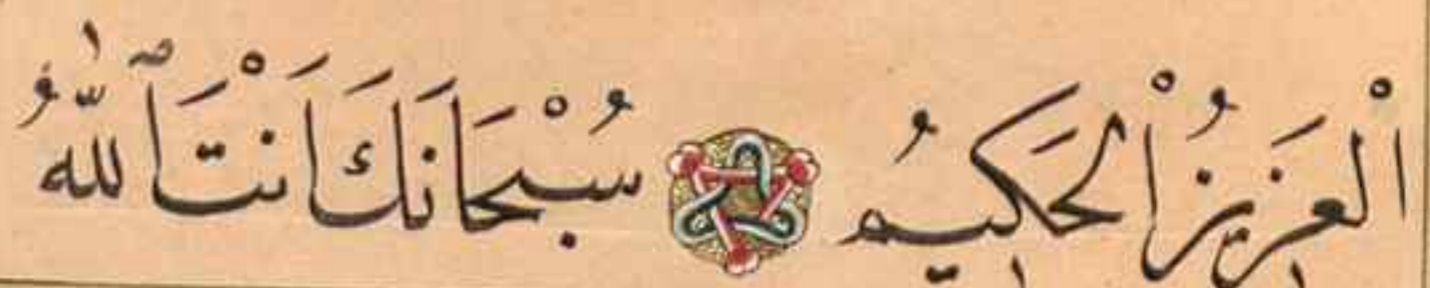 اْلعَزِيزُ اْلحَكِيمُ سُبْحَانَكَ اَنْتَ ٱللّٰهُ